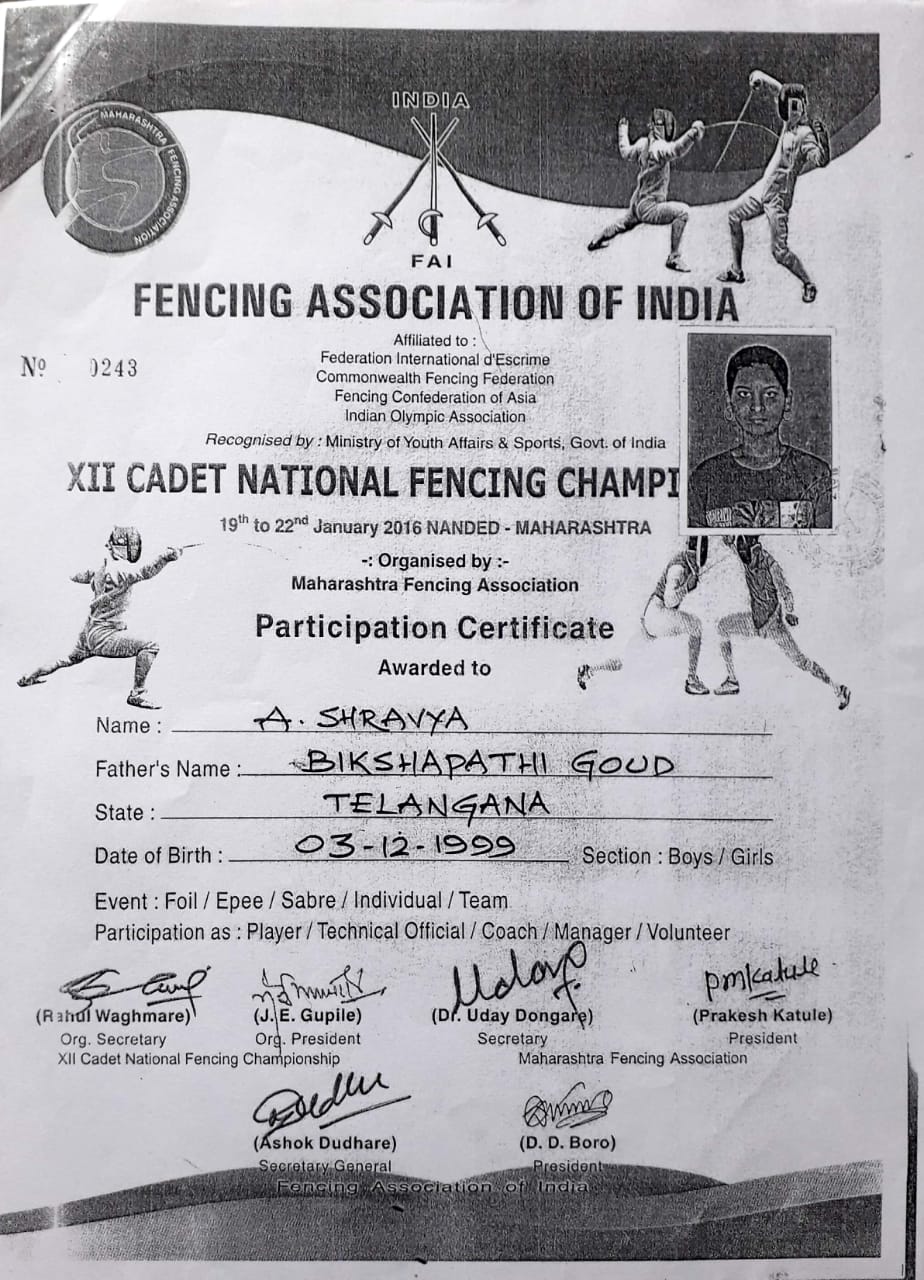 MAHARASHTRA FENCING ASSOCIATION
INDIA
FAI
FENCING ASSOCIATION OF INDIA
Affiliated to :
Federation International d'Escrime
Commonwealth Fencing Federation
Fencing Confederation of Asia
Indian Olympic Association
Nº 0243
Recognised by : Ministry of Youth Affairs & Sports, Govt. of India
XII CADET NATIONAL FENCING CHAMPI
19th to 22nd January 2016 NANDED - MAHARASHTRA
-: Organised by :-
Maharashtra Fencing Association
Participation Certificate
Awarded to
Name : A. SHRAVYA
Father's Name : BIKSHAPATHI GOUD
State : TELANGANA
Date of Birth : 03-12-1999 Section : Boys / Girls
Event : Foil / Epee / Sabre / Individual / Team
Participation as : Player / Technical Official / Coach / Manager / Volunteer
pmkatule
(Rahul Waghmare) (J.E. Gupile) (Dr. Uday Dongare) (Prakesh Katule)
Org. Secretary Org. President Secretary President
XII Cadet National Fencing Championship Maharashtra Fencing Association
(Ashok Dudhare) (D. D. Boro)
Secretary General President
Fencing Association of India